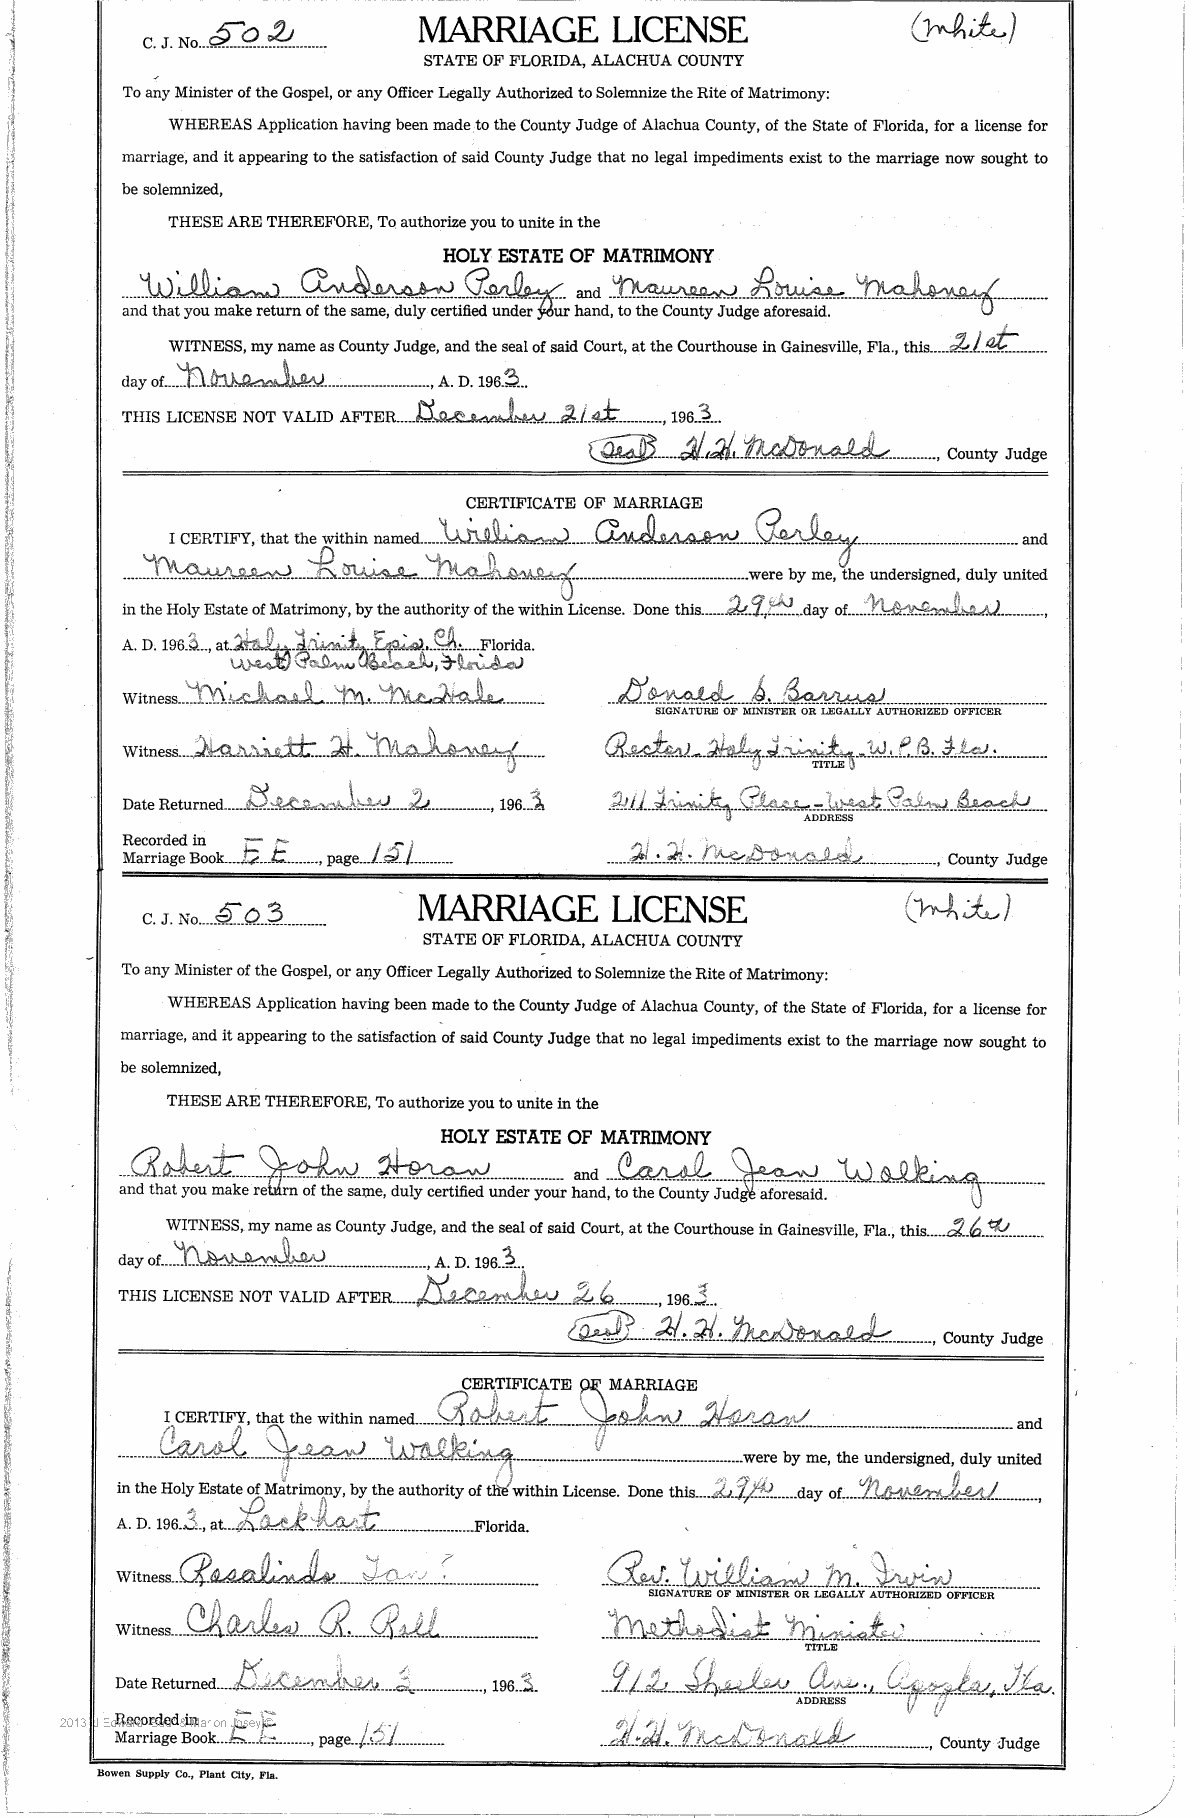 C. J. No. 502 MARRIAGE LICENSE (White)
STATE OF FLORIDA, ALACHUA COUNTY
To any Minister of the Gospel, or any Officer Legally Authorized to Solemnize the Rite of Matrimony:
WHEREAS Application having been made to the County Judge of Alachua County, of the State of Florida, for a license for
marriage, and it appearing to the satisfaction of said County Judge that no legal impediments exist to the marriage now sought to
be solemnized,
THESE ARE THEREFORE, To authorize you to unite in the
HOLY ESTATE OF MATRIMONY
William Anderson Perley and Maureen Louise Mahoney
and that you make return of the same, duly certified under your hand, to the County Judge aforesaid.
WITNESS, my name as County Judge, and the seal of said Court, at the Courthouse in Gainesville, Fla., this 21st
day of November, A. D. 1963.
THIS LICENSE NOT VALID AFTER December 21st, 1963.
(Seal) H. H. McDonald, County Judge
CERTIFICATE OF MARRIAGE
I CERTIFY, that the within named William Anderson Perley and
Maureen Louise Mahoney were by me, the undersigned, duly united
in the Holy Estate of Matrimony, by the authority of the within License. Done this 29th day of November,
A. D. 1963, at Holy Trinity Epis. Ch. Florida.
West Palm Beach, Florida
Witness Michael M. McHale Donald S. Barrus
SIGNATURE OF MINISTER OR LEGALLY AUTHORIZED OFFICER
Witness Harriett H. Mahoney Rector - Holy Trinity - W. P. B. Fla.
TITLE
Date Returned December 2, 1963 211 Trinity Place - West Palm Beach
ADDRESS
Recorded in
Marriage Book EE, page 151 H. H. McDonald, County Judge
C. J. No. 503 MARRIAGE LICENSE (White)
STATE OF FLORIDA, ALACHUA COUNTY
To any Minister of the Gospel, or any Officer Legally Authorized to Solemnize the Rite of Matrimony:
WHEREAS Application having been made to the County Judge of Alachua County, of the State of Florida, for a license for
marriage, and it appearing to the satisfaction of said County Judge that no legal impediments exist to the marriage now sought to
be solemnized,
THESE ARE THEREFORE, To authorize you to unite in the
HOLY ESTATE OF MATRIMONY
Robert John Horan and Carol Jean Walking
and that you make return of the same, duly certified under your hand, to the County Judge aforesaid.
WITNESS, my name as County Judge, and the seal of said Court, at the Courthouse in Gainesville, Fla., this 26th
day of November, A. D. 1963.
THIS LICENSE NOT VALID AFTER December 26, 1963.
(Seal) H. H. McDonald, County Judge
CERTIFICATE OF MARRIAGE
I CERTIFY, that the within named Robert John Horan and
Carol Jean Walking were by me, the undersigned, duly united
in the Holy Estate of Matrimony, by the authority of the within License. Done this 29th day of November,
A. D. 1963, at Lockhart Florida.
Witness Rosalinda Rev. William M. Irvin
SIGNATURE OF MINISTER OR LEGALLY AUTHORIZED OFFICER
Witness Charles R. Roll Methodist Minister
TITLE
Date Returned December 2, 1963 912 Sheeler Ave., Apopka, Fla.
ADDRESS
Recorded in
Marriage Book EE, page 151 H. H. McDonald, County Judge
Bowen Supply Co., Plant City, Fla.